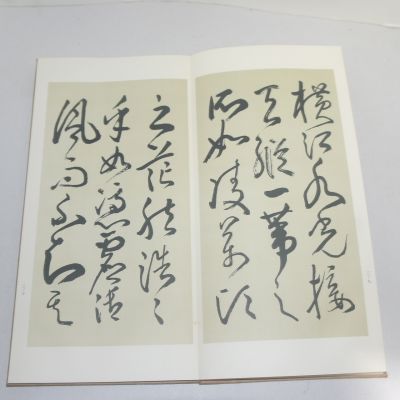 橫江水光接
天縱一葦之
所如凌萬頃
之茫然浩々
乎如馮虛御
風而不知其